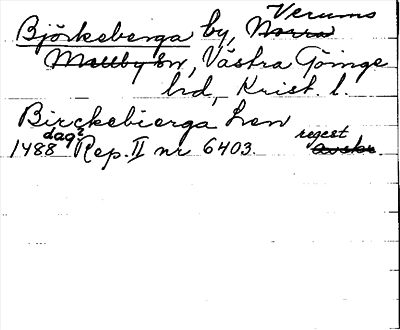 Björkeberga by, Verums
Norra
Mellby sn, Västra Göinge
hd, Krist. l.
Birckebierga Len
1488 dag? Rep. II nr 6403. regest
avskr.